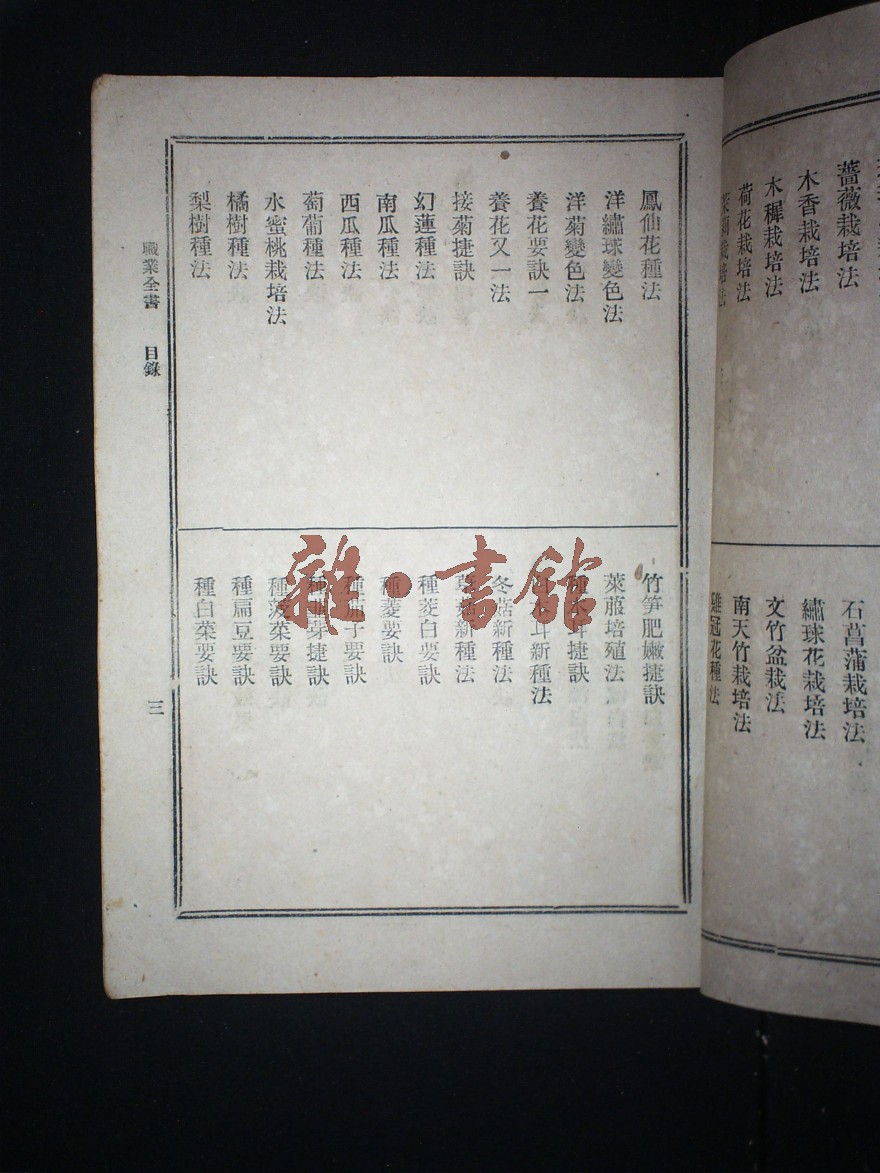 薔薇栽培法
木香栽培法
木樨栽培法
荷花栽培法
栽培法
石菖蒲栽培法
繡球花栽培法
文竹盆栽法
南天竹栽培法
雞冠花種法
鳳仙花種法
洋繡球變色法
洋菊變色法
養花要訣一
養花又一法
接菊捷訣
幻蓮種法
南瓜種法
西瓜種法
萄葡種法
水蜜桃栽培法
橘樹種法
梨樹種法
竹笋肥嫩捷訣
萊菔培殖法
種木耳捷訣
木耳新種法
冬菇新種法
新種法
種茭白要訣
種菱要訣
種茄子要訣
種芽捷訣
種菠菜要訣
種扁豆要訣
種白菜要訣
職業全書 目錄
三
雜·書館